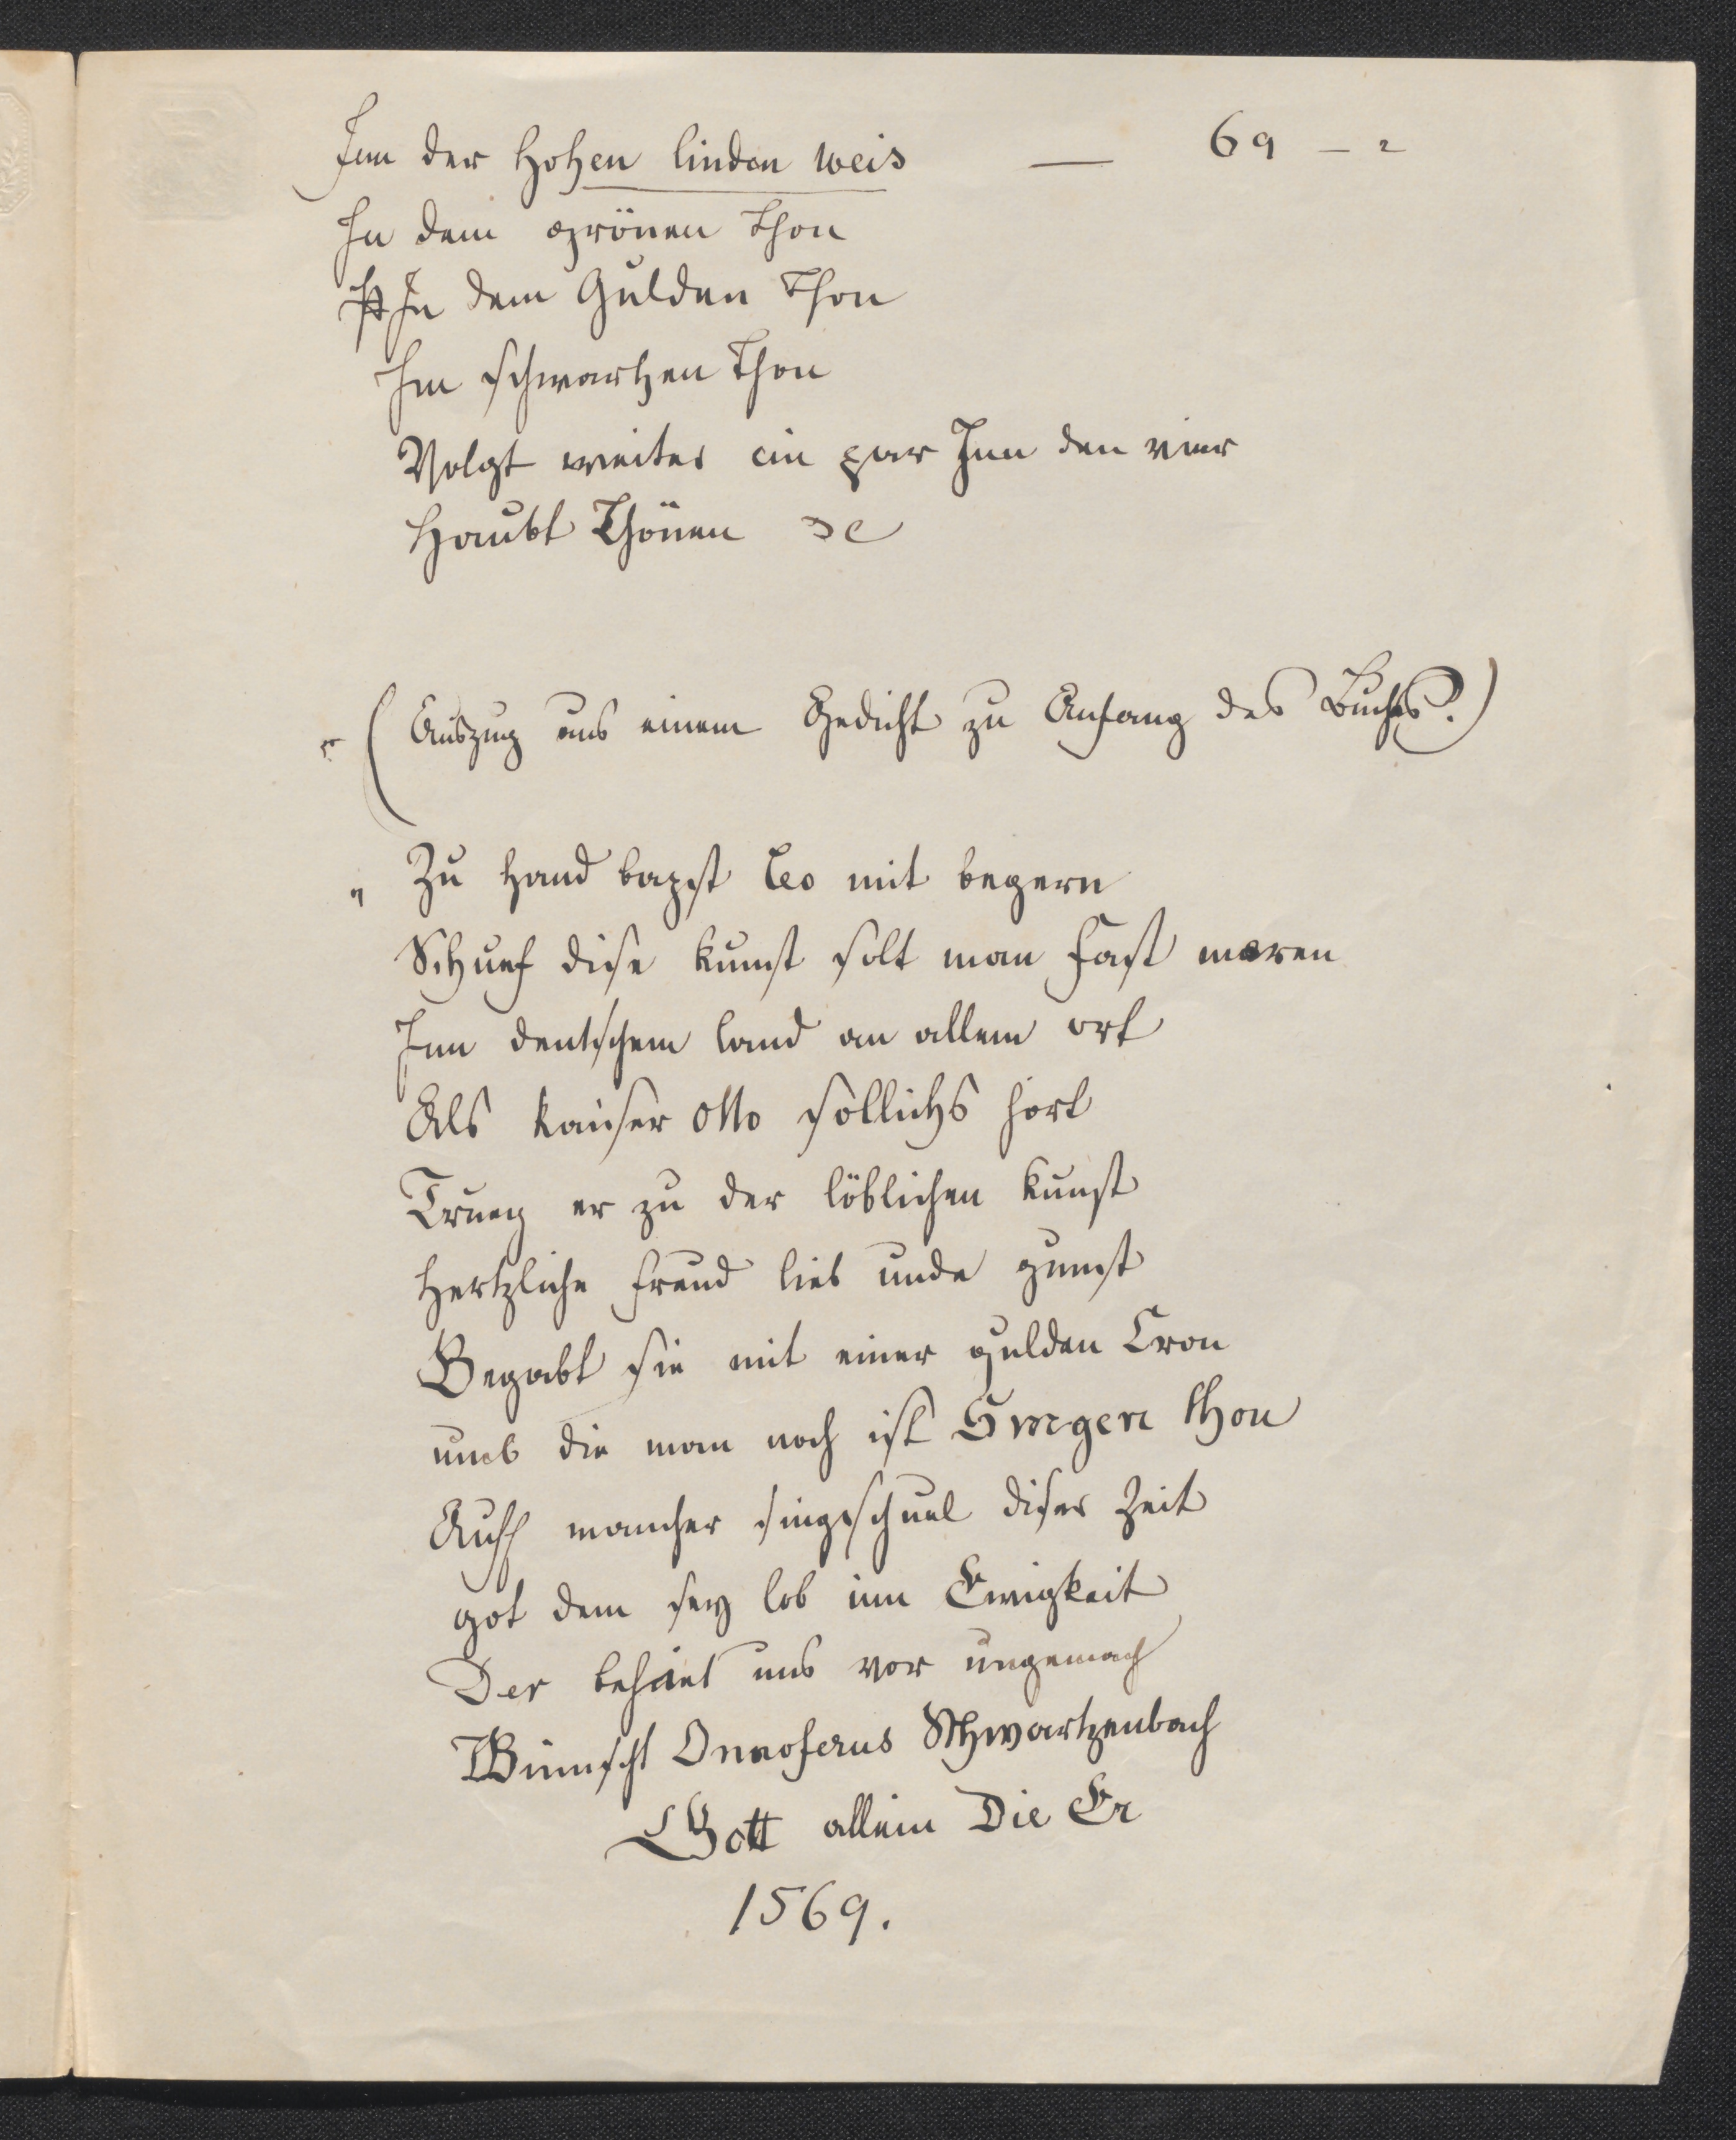 Jnn der Hohen linden weis — 69 – 2
Jn dem grönen Thon
Jn dem Gulden Thon
Jm schwartzen Thon
Volgt weiter ein par Jnn den vier
Haubt Thönen
(Auszug aus einem Gedicht zu Anfang des Buches.)
„ Zu hand bapst Leo mit begern
Schuef dise kunst solt man fast meren
Jnn deutschem land an allem ort
Als kaiser Otto sollichs hort
Trueg er zu der löblichen kunst
Hertzliche freud lieb unde gunst
Begabt sie mit einer gulden Cron
umb die man noch ist Singen thon
Auff mancher singschuel diser Zeit
got dem sey lob inn Ewigkait
Der behüet uns vor ungemach
Wünscht Onnoferus Schwartzenbach
Gott allein Die Er
1569.